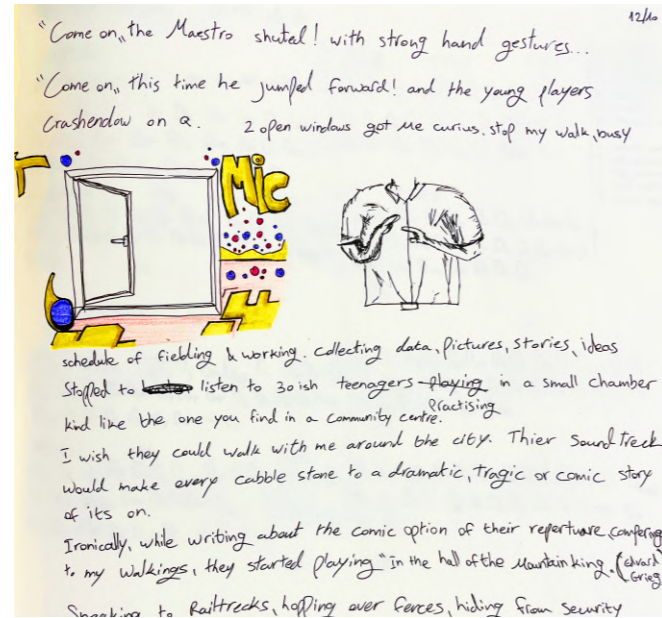 12/10
"Come on„ the Maestro shuted! with strong hand gestures...
"Come on„ this time he jumped forward! and the young players
Crashendow on Q. 2 open windows got me curius. stop my walk, busy
T
Mic
schedule of fielding & working. Collecting data, pictures, stories, ideas
Stopped to listen to 30ish teenagers playing in a small chamber
Practising
kind like the one you find in a community centre.
I wish they could walk with me around the city. Thier Soundtreck
would make every cabble stone to a dramatic, tragic or comic story
of its on.
Ironically, while writing about the comic option of their repertuare, compering
to my walkings, they started playing "in the hall of the Mountain king„ (Edvard Grieg
Sneaking to Railtrecks, hopping over fences, hiding from security